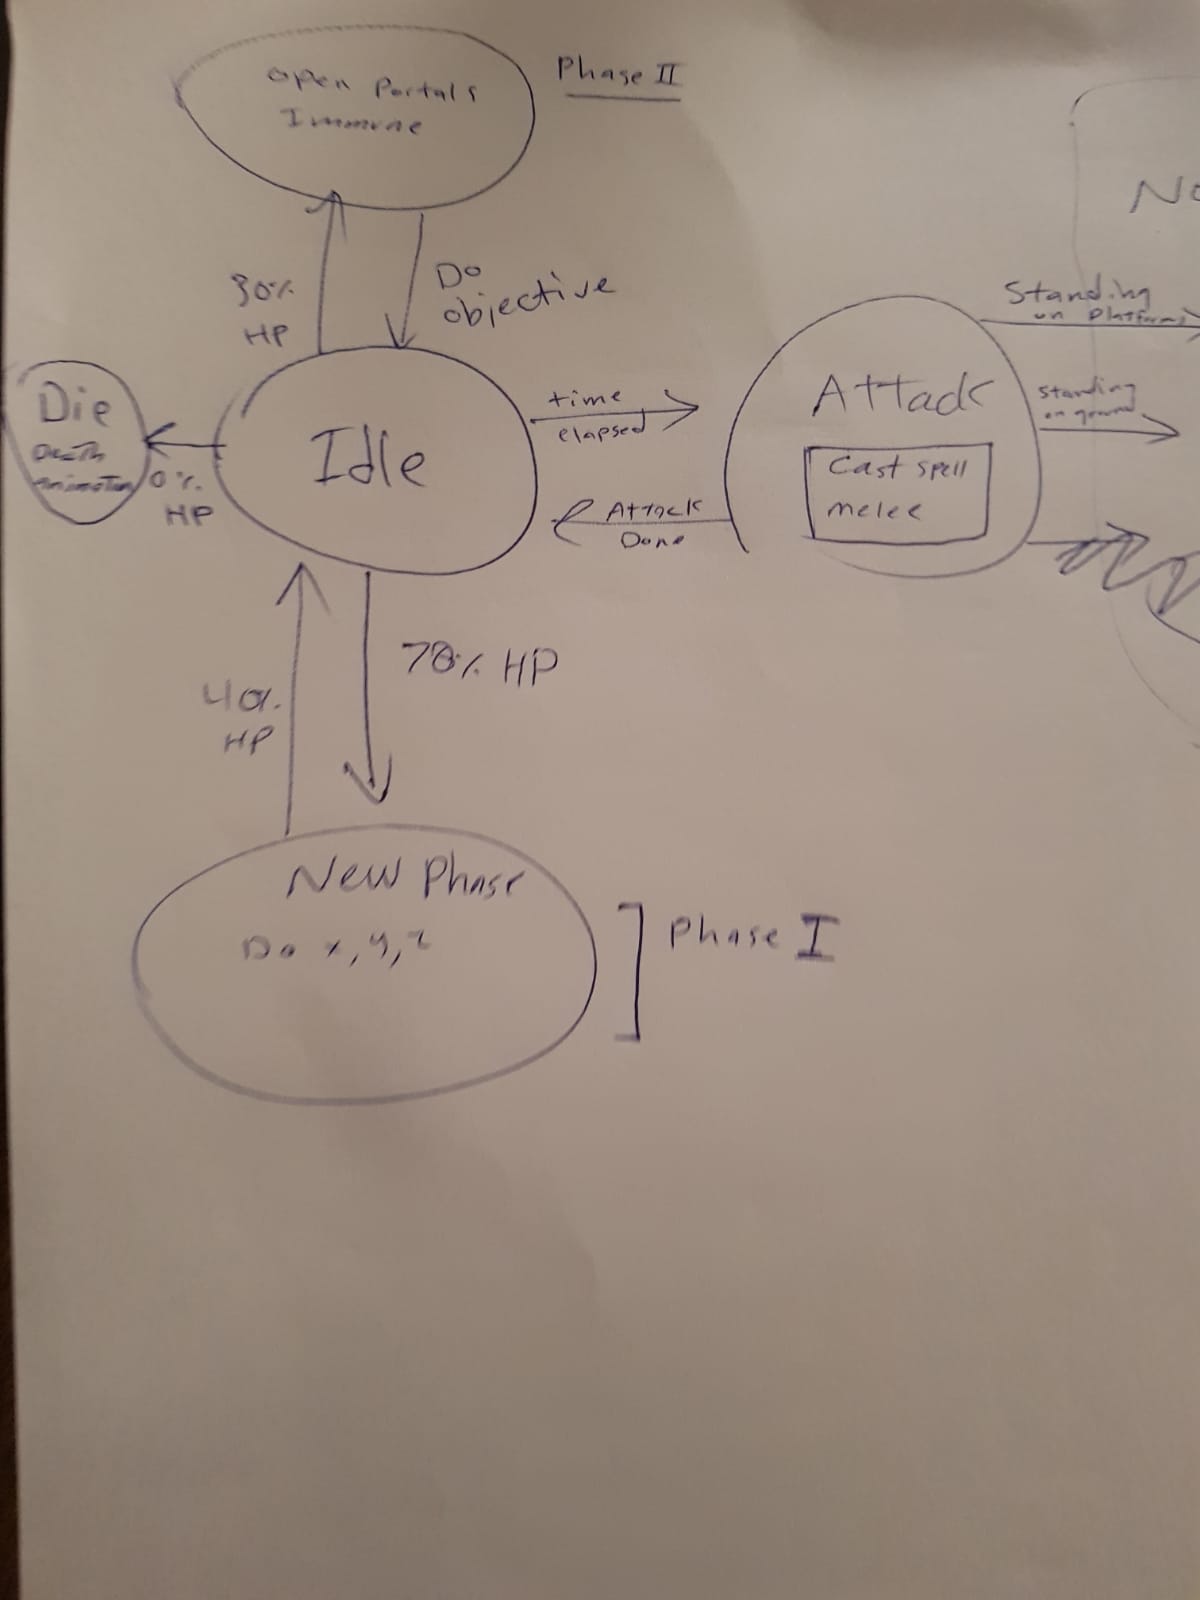 Open Portals
Immune
Phase II
30%
HP
Do
objective
Die
Death
Animation
0%
HP
Idle
time
elapsed
Attack
Done
Attack
Cast spell
melee
Standing
on Platforms
Standing
on ground
No
70% HP
40%
HP
New Phase
Do x, y, z
Phase I